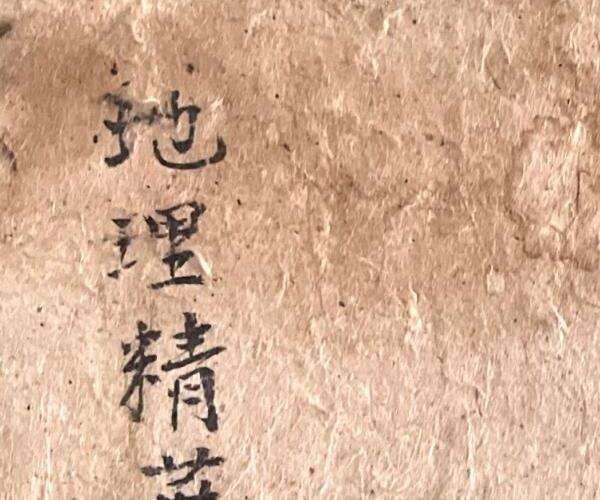 地理精